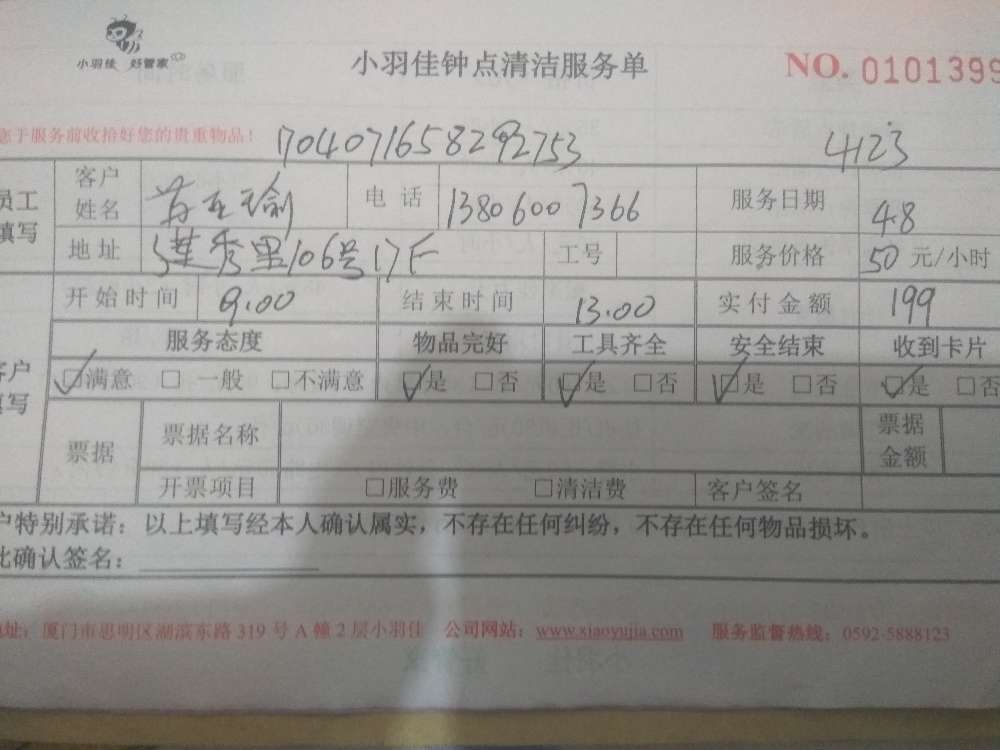 小羽佳 好管家
小羽佳钟点清洁服务单
NO. 0101399
您于服务前收拾好您的贵重物品！
1704071658292753
4123
员工填写
客户姓名
电话 13806007366
服务日期 4.8
地址 莲秀里106号17F
工号
服务价格 50 元/小时
开始时间 9.00
结束时间 13.00
实付金额 199
客户填写
服务态度 物品完好 工具齐全 安全结束 收到卡片
☑满意 □ 一般 □不满意 ☑是 □否 ☑是 □否 ☑是 □否 ☑是 □否
票据 票据名称 票据金额
开票项目 □服务费 □清洁费 客户签名
户特别承诺：以上填写经本人确认属实，不存在任何纠纷，不存在任何物品损坏。
此确认签名：
地址：厦门市思明区湖滨东路 319 号 A 幢 2 层小羽佳 公司网站：www.xiaoyujia.com 服务监督热线：0592-5888123